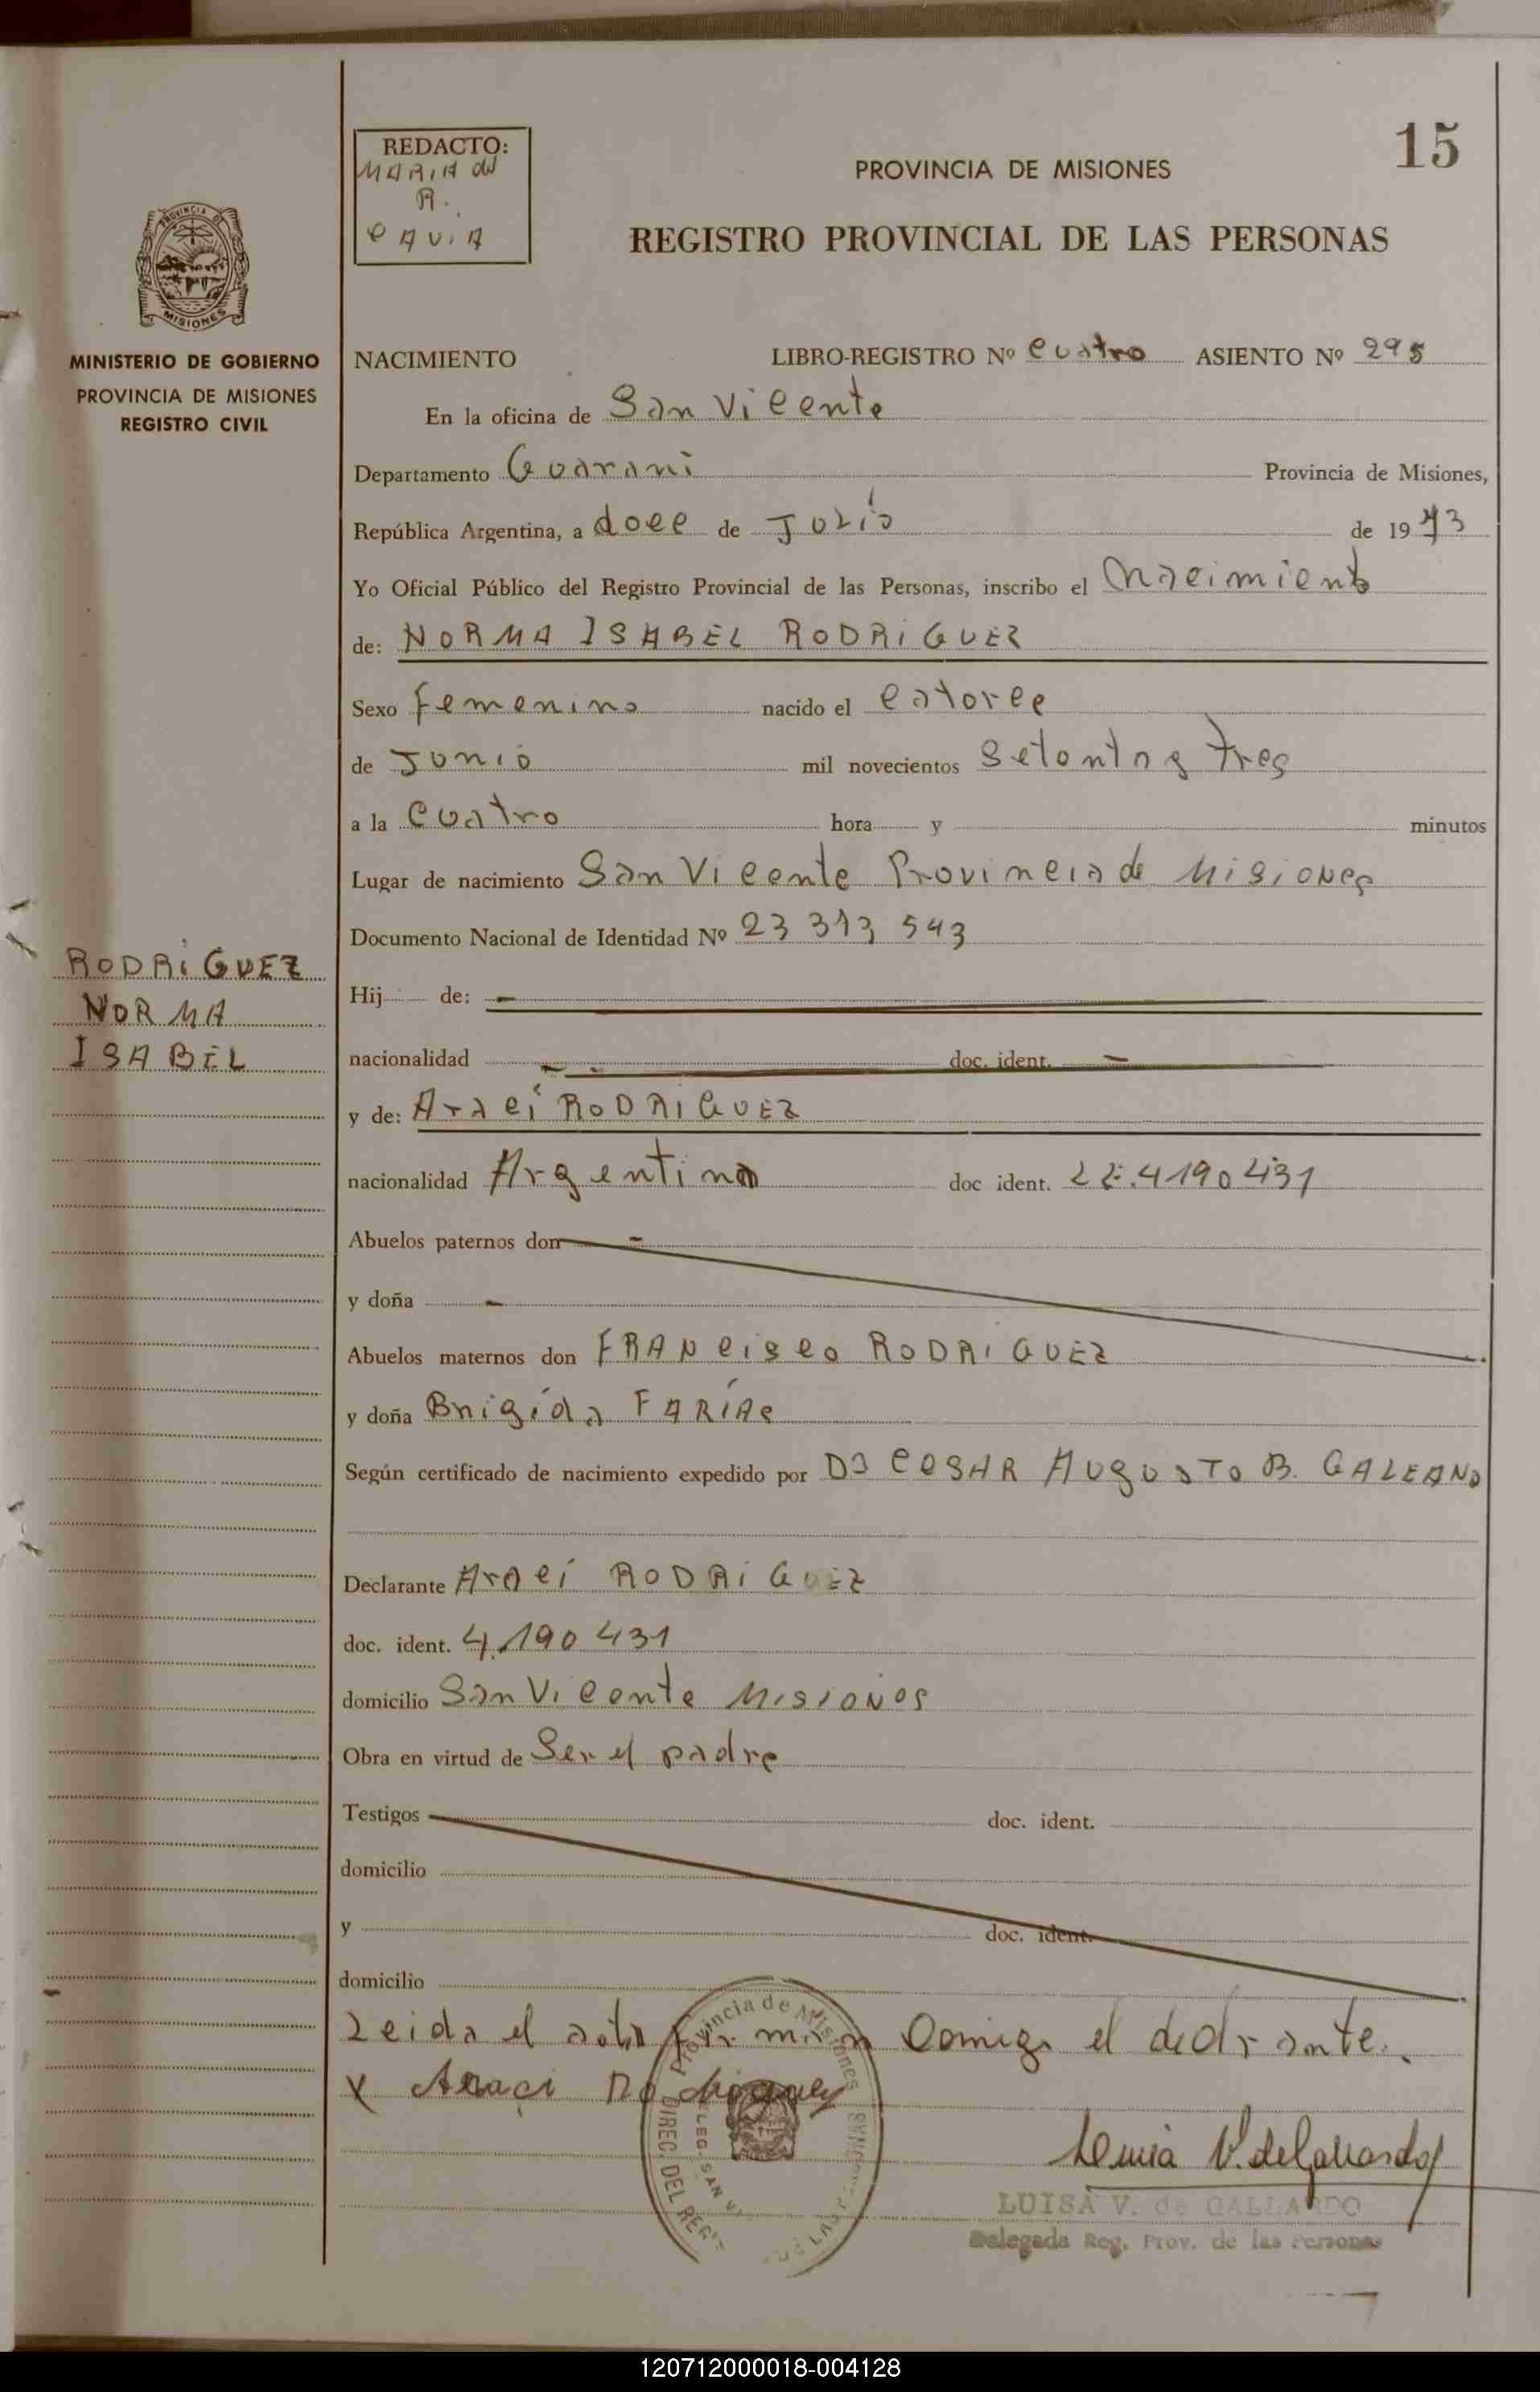 15
REDACTO:
MARIA
R.
CAVIA
PROVINCIA DE MISIONES
REGISTRO PROVINCIAL DE LAS PERSONAS
PROVINCIA DE
MISIONES
MINISTERIO DE GOBIERNO
PROVINCIA DE MISIONES
REGISTRO CIVIL
NACIMIENTO LIBRO-REGISTRO Nº Cuatro ASIENTO Nº 295
En la oficina de San Vicente
Departamento Guaraní Provincia de Misiones,
República Argentina, a doce de Julio de 1973
Yo Oficial Público del Registro Provincial de las Personas, inscribo el Nacimiento
de: NORMA ISABEL RODRIGUEZ
Sexo femenino nacido el catorce
de Junio mil novecientos Setenta y tres
a la Cuatro hora y minutos
Lugar de nacimiento San Vicente Provincia de Misiones
Documento Nacional de Identidad Nº 23 313 543
RODRIGUEZ
NORMA
ISABEL
Hij de: -
nacionalidad doc. ident. -
y de: Arací RODRIGUEZ
nacionalidad Argentina doc ident. 4190431
Abuelos paternos don -
y doña -
Abuelos maternos don FRANCISCO RODRIGUEZ
y doña Brigida FARÍAS
Según certificado de nacimiento expedido por CESAR AUGUSTO B. GALEANO
Declarante Arací RODRIGUEZ
doc. ident. 4.190 431
domicilio San Vicente MISIONES
Obra en virtud de Ser el padre
Testigos doc. ident.
domicilio
y doc. ident.
domicilio
Leida el acta firman Comigo el declarante.
X Araçi
Provincia de Misiones
DIREC. DEL REG.
DELEG. SAN
V. de Gallardo
LUISA V. de GALLARDO
Delegada Reg. Prov. de las Personas
120712000018-004128